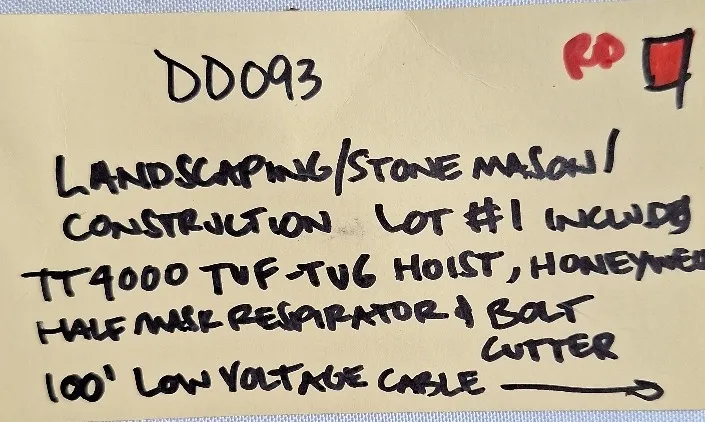 DD093
RD
LANDSCAPING/STONE MASON/
CONSTRUCTION LOT #1 INCLUDES
TT4000 TUF-TUG HOIST, HONEYWEL
HALF MASK RESPIRATOR & BOLT
CUTTER
100' LOW VOLTAGE CABLE →